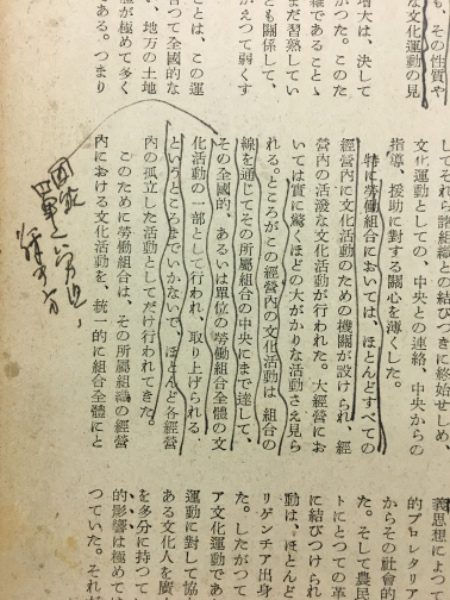 も、その性質や
な文化運動の見
増大は、決して
かつた。このた
雑であることゝ
まだ習熟してい
とも關係して、
がえつて弱くす
ことは、この運
皆つて全國的な
い、地方の土地
體が極めて多く
ある。つまり
してそれら諸組織との結びつきに終始せしめ、
文化運動としての、中央との連絡、中央からの
指導、援助に對する關心を薄くした。
特に勞働組合においては、ほとんどすべての
經營內に文化活動のための機關が設けられ、經
營內の活潑な文化活動が行われた。大經營にお
いては實に驚くほどの大がかりな活動さえ見ら
れる。ところがこの經營內の文化活動は、組合の
線を通じてその所屬組合の中央にまで達して、
その全國的、あるいは單位の勞働組合全體の文
化活動の一部として行われ、取り上げられる、
というところまでいかないで、ほとんど各經營
內の孤立した活動としてだけ行われてきた。
このために勞働組合は、その所屬組織の經營
內における文化活動を、統一的に組合全體にと
義思想によつて
的プロレタリア
からその社會的
た。そして農民
トにとつての革
に結びつけられ
動は、ほとんど
リゲンチア出身
た。したがつて
ア文化運動であ
運動に對して協
ある文化人を廣
を多分に持つて
的影響は極めて
つていた。それ